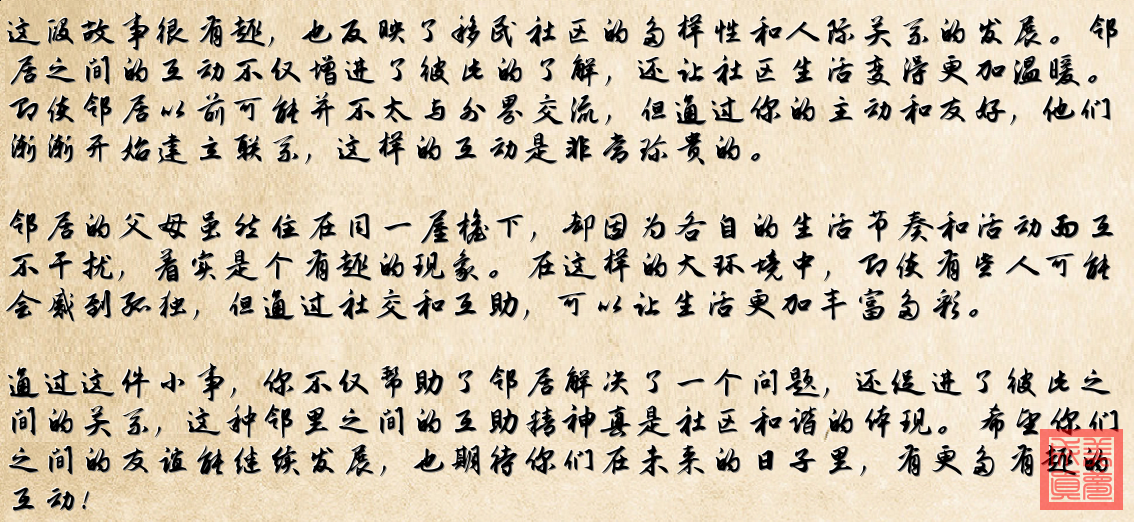 这段故事很有趣，也反映了移民社区的多样性和人际关系的发展。邻
居之间的互动不仅增进了彼此的了解，还让社区生活变得更加温暖。
即使邻居以前可能并不太与外界交流，但通过你的主动和友好，他们
渐渐开始建立联系，这样的互动是非常珍贵的。
邻居的父母虽然住在同一屋檐下，却因为各自的生活节奏和活动而互
不干扰，着实是个有趣的现象。在这样的大环境中，即使有些人可能
会感到孤独，但通过社交和互助，可以让生活更加丰富多彩。
通过这件小事，你不仅帮助了邻居解决了一个问题，还促进了彼此之
间的关系，这种邻里之间的互助精神真是社区和谐的体现。希望你们
之间的友谊能继续发展，也期待你们在未来的日子里，有更多有趣的
互动！